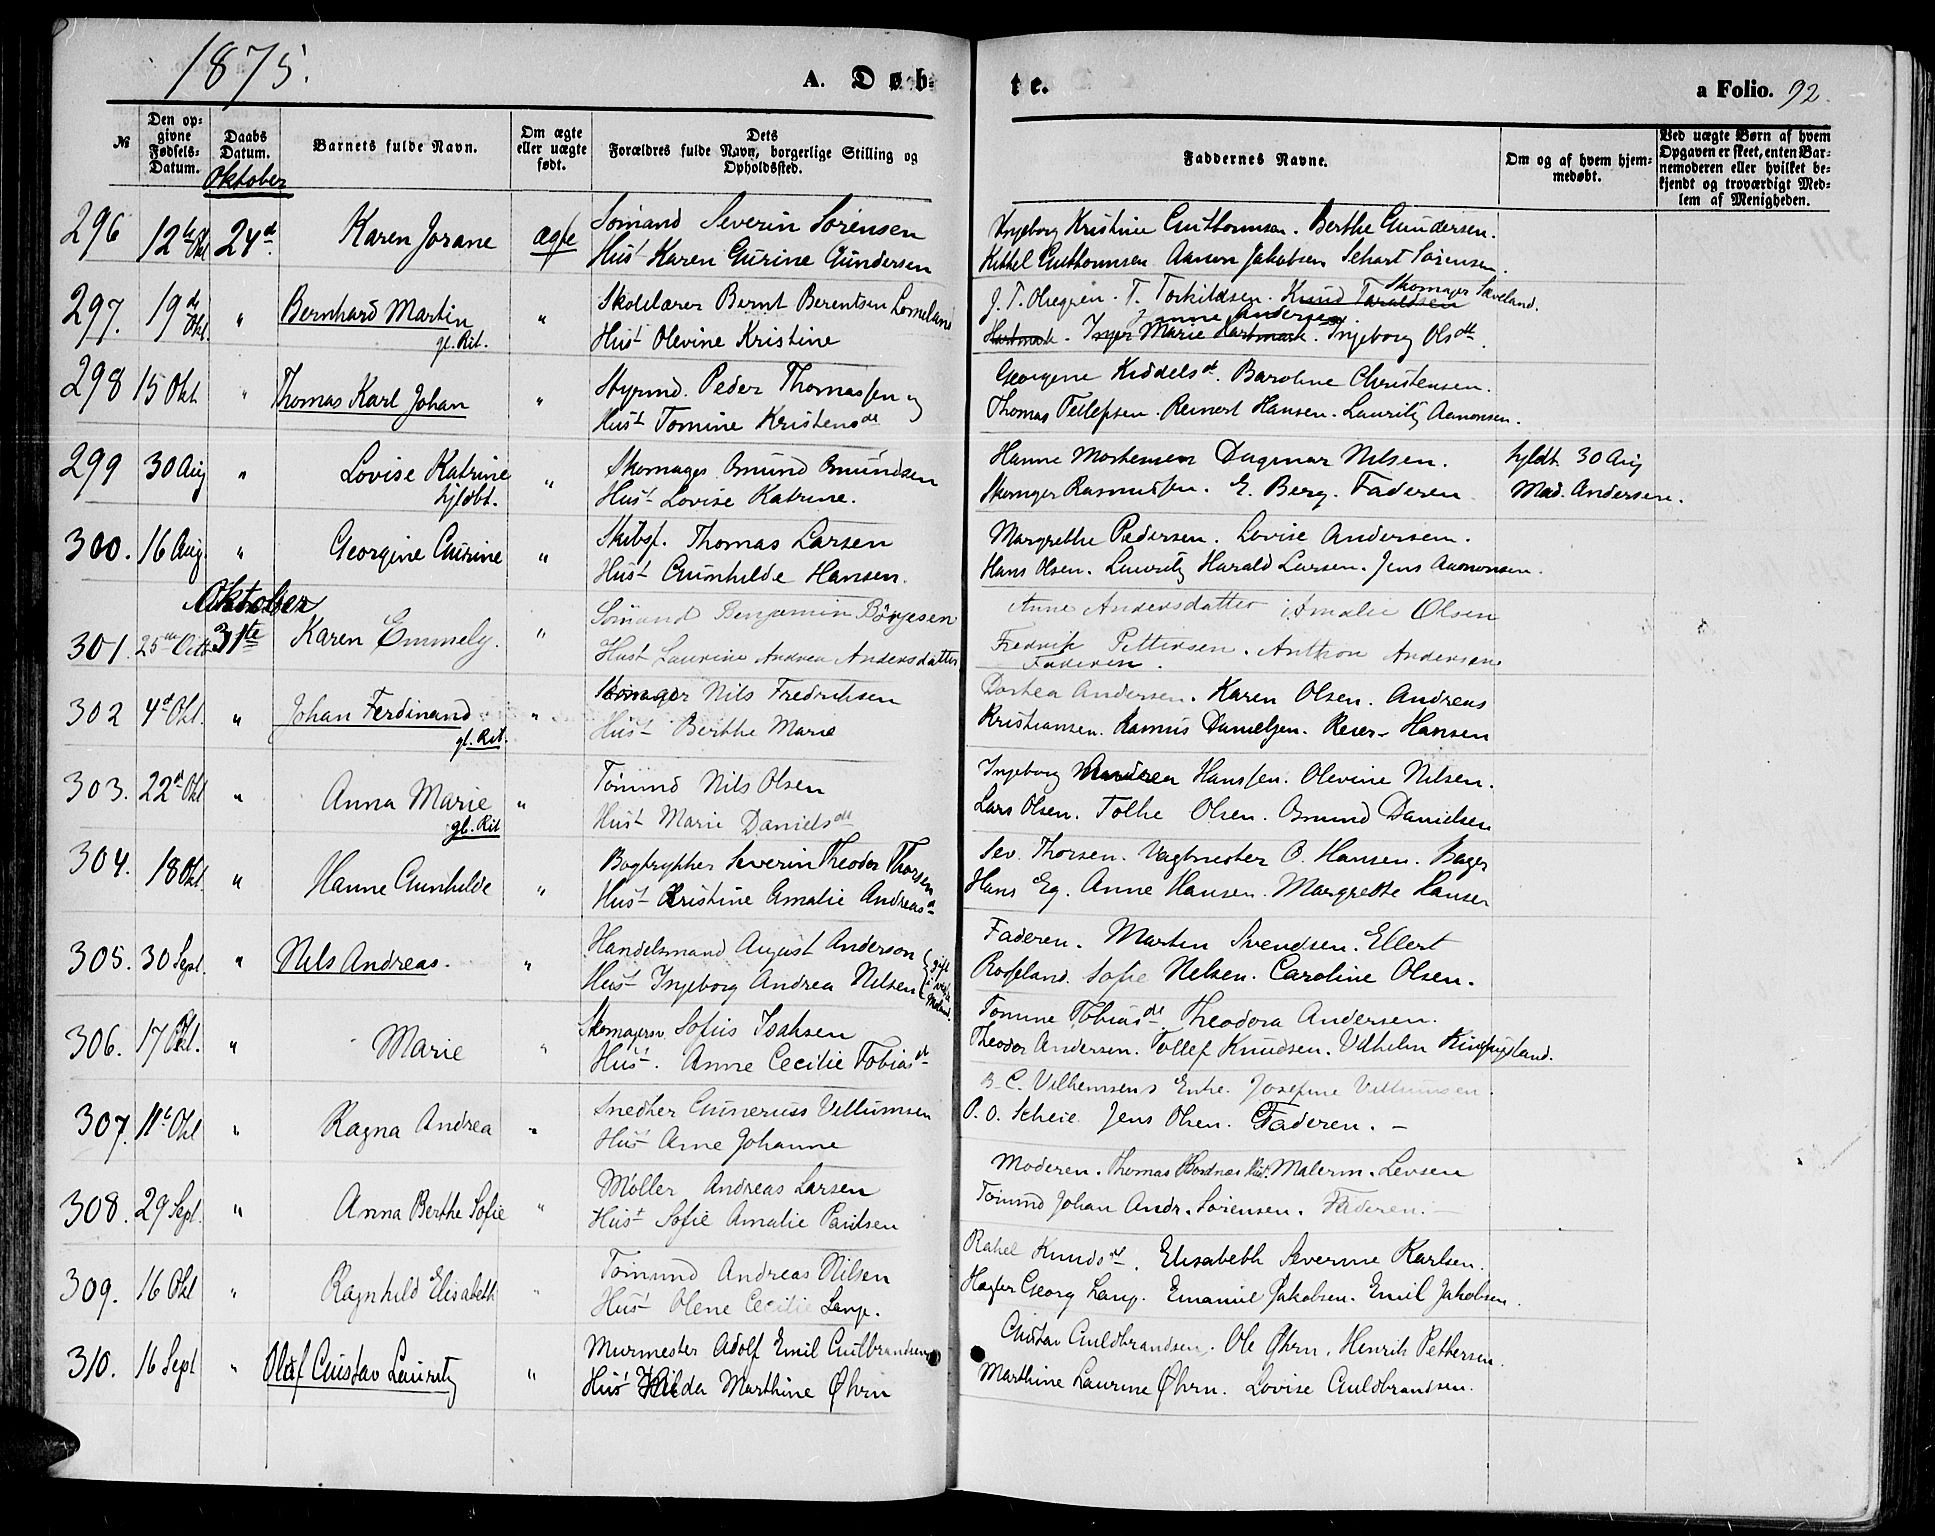 1875.
A. Døb-
te.
a Folio. 92.
№
Den opgivne Fødsels-Datum.
Daabs Datum.
Barnets fulde Navn.
Om ægte eller uægte født.
Dets Forældres fulde Navn, borgerlige Stilling og Opholdssted.
Faddernes Navne.
Om og af hvem hjemmedøbt.
Ved uægte Børn af hvem Opgaven er skeet, enten Barnemoderen eller hvilket bekjendt og troværdigt Medlem af Menigheden.
Oktober
296 12te Okt 24de Karen Jorane ægte Sömand Severin Sörensen
Hust Karen Gurine Gundersen
Ingeborg Kristine Gutthormsen. Berthe Gundersen.
Kittel Gutthormsen Aanon Jakobsen Sörensen.
297. 19de Okt. " Bernhard Martin gl. Rit. " Skolelærer Bernt Berentsen Lomeland
Hust Olevine Kristine
Skomager Sæveland.
J. T. Olsen. T. Torkildsen. Knud Taraldsen
Anne Andersen
Hartmark. Inger Marie Hartmark. Ingeborg Olsdt.
298 15 Okt " Thomas Karl Johan " Styrmd. Peder Thomassen og
Hust Tomine Kristensdt
Georgine Kiddelsdt. Baroline Christensen.
Thomas Tellefsen. Reinert Hansen. Lauritz Aanonsen.
299 30 Aug " Lovise Katrine hjdbt. " Skomager Omund Omundsen
Hust Lovise Katrine.
Hanne Mortensen Dagmar Nilsen.
Skomager Rasmussen. E. Berg. Faderen
hjdt 30 Aug
Mad. Andersen.
300. 16 Aug. " Georgine Gurine " Skibsf. Thomas Larsen
Hust Gunhilde Hansen.
Margrethe Pedersen. Lovise Andersen.
Hans Olsen. Lauritz Harald Larsen. Jens Aanonsen.
Oktober
301. 25de Octb 31te Karen Emmely. " Sömand Benjamin Börgesen
Hust Laurine Andrea Andersdatter
Anne Andersdatter Amalie Olsen
Fredrik Pettersen. Anthon Andersen
Faderen.
302 4de Okt. " Johan Ferdinand gl. Rit. " Skomager Nils Fredriksen
Hust Berthe Marie
Dorthea Andersen. Karen Olsen. Andreas
Kristiansen. Rasmus Danielsen. Reier Hansen
303. 22de Okt " Anna Marie gl. Rit " Tömmd Nils Olsen
Hust Marie Danielsdt
Ingeborg Andrea Hanssen. Olevine Nilsen.
Lars Olsen. Tolke Olsen. Omund Danielsen
304. 18 Okt. " Hanne Gunhilde " Bogtrykker Severin Theodor Thorsen
Hust Kristine Amalie Andreasdt
Sev. Thorsen. Vagtmester O. Hansen. Bager
Hans Eg. Anne Hansen. Margrethe Hansen
305. 30 Sept. " Nils Andreas. " Handelsmand August Anderson
Hust Ingeborg Andrea Nilsen
Faderen. Martin Svendsen. Ellert
Rosseland. Sofie Nelsen. Caroline Olsen.
306. 17 Okt. " Marie " Skomagersv Sofus Isaksen
Hust. Anne Cecilie Tobiasdt
Tomine Tobiasdt Theodora Andersen.
Theodor Andersen. Tollef Knudsen. Vilhelm
307. 11te Okt " Ragna Andrea " Snedker Gunerius Villumsen
Hust Ane Johanne
B. C. Vilhemsens Enke. Josefine Villumsen.
P. O. Scheie Jens Olsen. Faderen. -
308. 29 Sept. " Anna Berthe Sofie " Möller Andreas Larsen
Hust Sofie Amalie Paulsen
Moderen. Thomas Malerm. Levsen
Tömmd Johan Andr. Sörensen. Faderen. -
309. 16 Okt " Ragnhild Elisabeth " Tömmd Andreas Nilsen
Hust Olene Cecilie Lange.
Rakel Knudsdt. Elisabeth Severine Karlsen.
Georg Lang. Emanuel Jakobsen. Emil Jakobsen.
310. 16 Sept " Olaf Gustav Lauritz " Murmester Adolf Emil Gulbrandsen
Hust Hilda Marthine Øhrn
Gustav Guldbrandsen. Ole Øhrn. Henrik Pettersen.
Marthine Laurine Øhrn. Lovise Guldbrandsen.